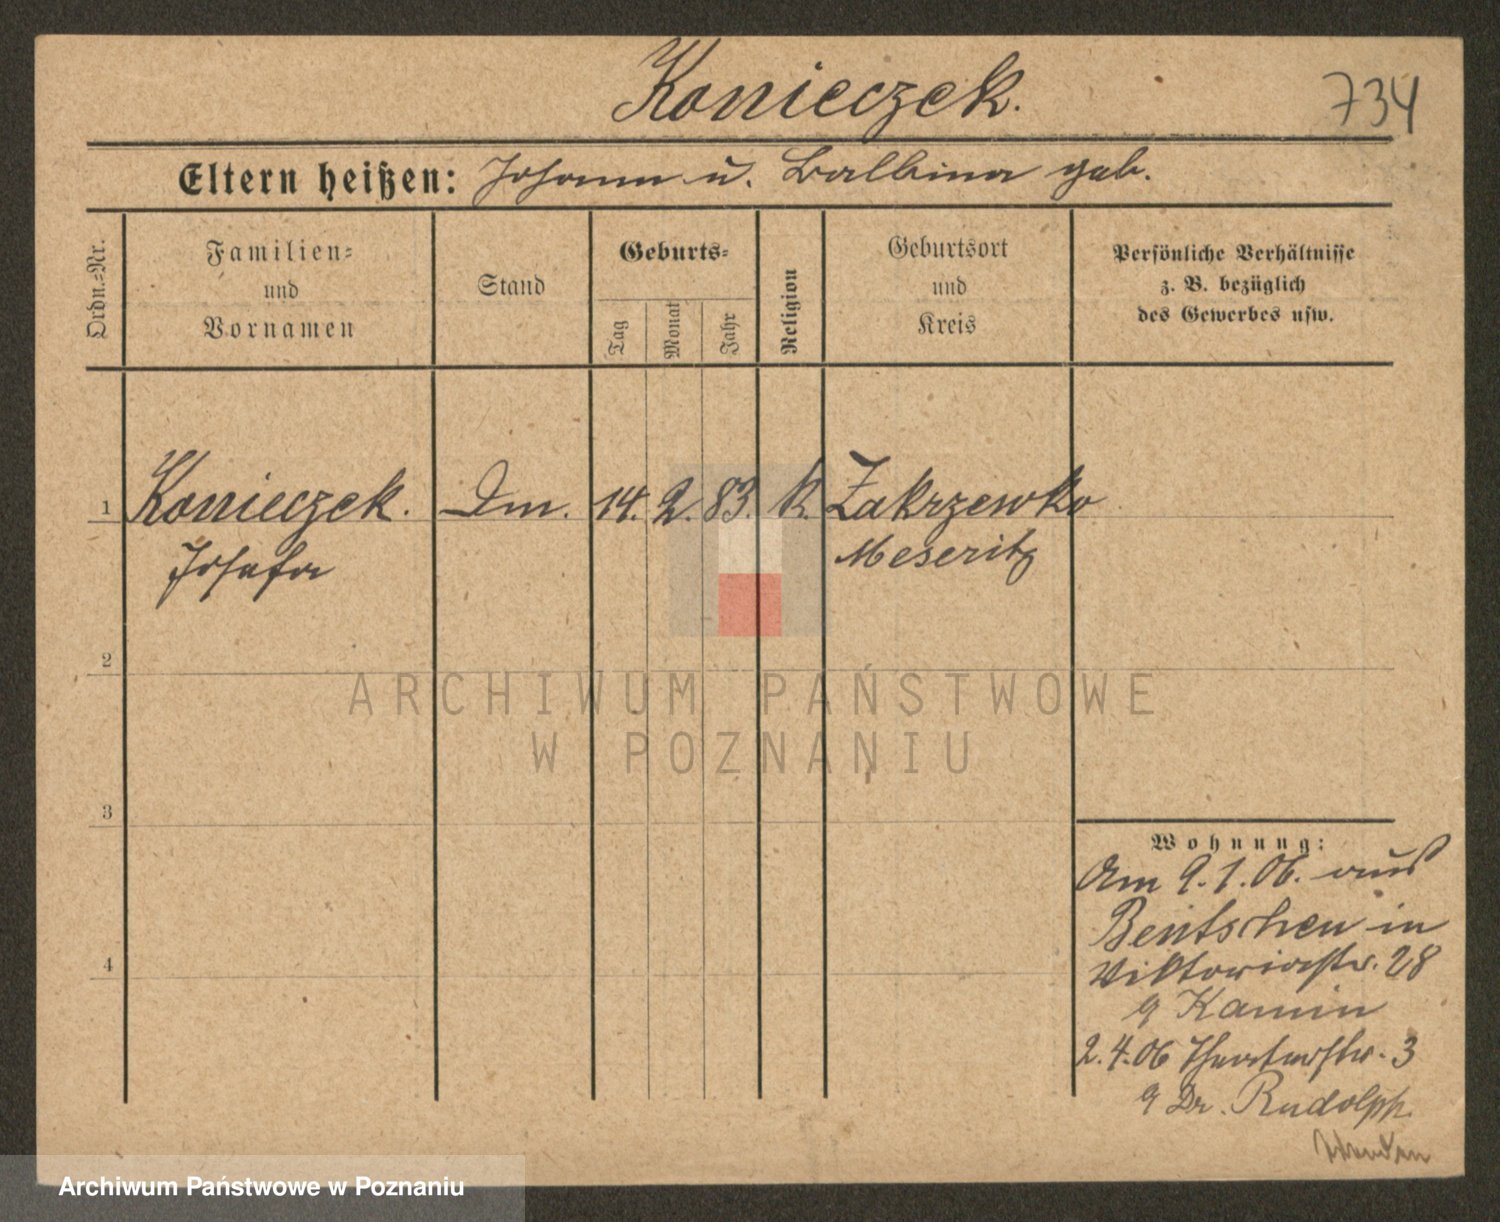 Konieczek.
734
Eltern heißen: Johann u. Balbina geb.
Ordn.=Nr.
Familien=
und
Vornamen
Stand
Geburts=
Tag
Monat
Jahr
Religion
Geburtsort
und
Kreis
Persönliche Verhältnisse
z. B. bezüglich
des Gewerbes usw.
1 Konieczek. Dm. 14. 2. 83. k. Zakrzewko
Josefa Meseritz
2
ARCHIWUM PAŃSTWOWE
W POZNANIU
3
Wohnung:
Am 9.1.06. aus
Bentschen in
Viktoriastr. 28
Kamin
4
2.4.06 Theaterstr. 3
Dr. Rudolph
Archiwum Państwowe w Poznaniu